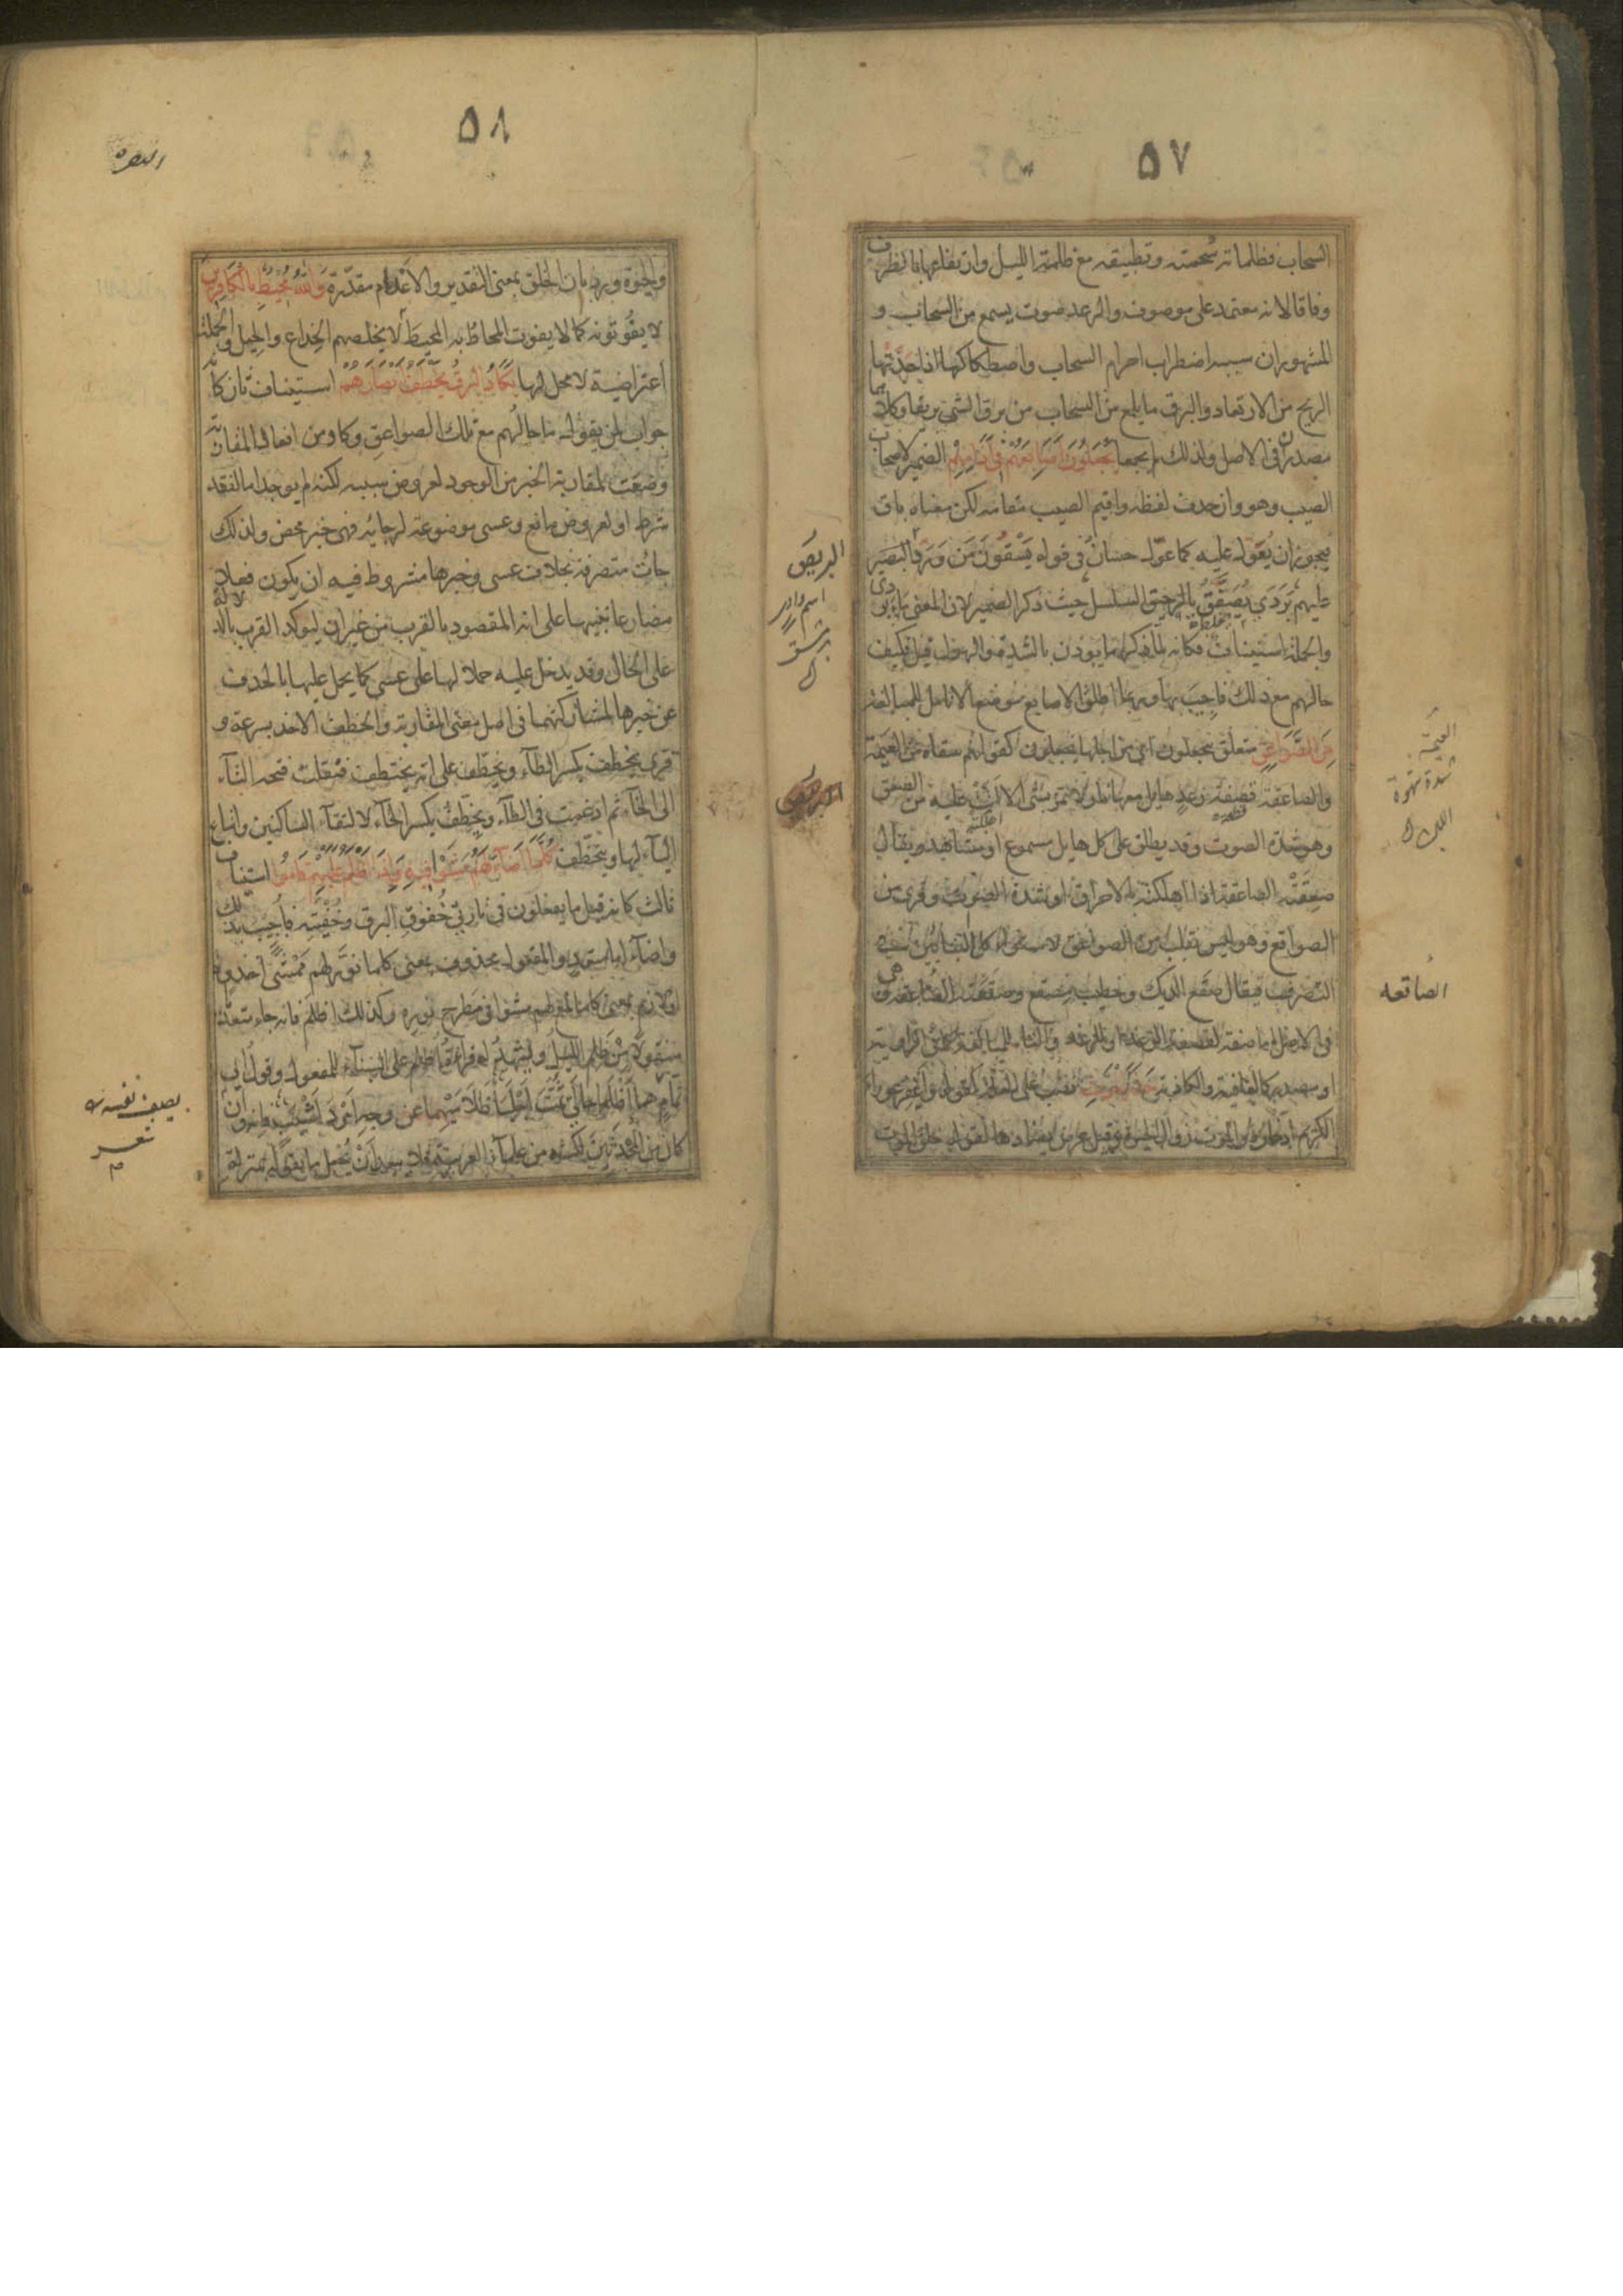 ٥٧
السحاب فظلماته سُحمته وتطبيقه مع ظلمة الليل وارتفاعها بالظرف
وفاقا لانه معتمد على موصوف والرعد صوت يسمع من السحاب و
المشهور ان سببه اضطراب اجرام السحاب واصطكاكها اذا حَدَتْها
الريح من الارتعاد والبرق ما يلمع من السحاب من برق الشئ بريقا وكلاهما
مصدر فى الاصل ولذلك لم يجمعا يَجْعَلُونَ اَصَابِعَهُمْ فِى اٰذَانِهِمْ الضمير لاصحاب
الصيب وهو وان حذف لفظه واقيم الصيب مقامه لكن معناه باق
فيجوز ان يُعَوّل عليه كما عوّل حسان فى قوله يَسْقُونَ مَن وَرَدَ البَريصَ
عليهم بَرَدَى يُصَفَّقُ بالرحيق السلسل حيث ذكر الضمير لان المعنى ماء بردى
والجملة استيناف فكانه لما ذكر ما يؤذن بالشدة والهول قيل فكيف
حالهم مع ذلك فاجيب بها وانما اطلق الاصابع موضع الانامل للمبالغة
مِنَ الصَّوَاعِقِ متعلق بيجعلون اى من اجلها يجعلون كقولهم سقاه من العيمة
والصاعقة قصفة رعد هايل معها نار لا تمر بشئ الا اتت عليه من الصعق
وهو شدة الصوت وقد يطلق على كل هايل مسموع او مشاهد ويقال
صعقته الصاعقة اذا اهلكته بالاحراق او شدة الصوت وقرئ من
الصواقع وهو ليس بقلب من الصواعق لاستواء كلا البنائين فى
التصرف فيقال صقع الديك وخطيب مِصقع وصقعته الصاقعة وهى
فى الاصل اما صفة لقصفة الرعد او للرعد والتاء للمبالغة كما فى الراوية
او مصدر كالعافية والكاذبة حَذَرَ الْمَوْتِ نصب على العلة كقوله واغفر عوراء
الكريم ادخاره والموت زوال الحيوة وقيل عرض يضادها لقوله خلق الموت
البريص
اسم واد
بدمشق
العيمة
شدة شهوة
اللبن
الصاقعه
٥٨
البقره
والحيوة ورد بان الخلق بمعنى التقدير والاعدام مقدّرة وَاللهُ مُحِيطٌ بِالْكَافِرِينَ
لا يفوتونه كما لا يفوت المحاط به المحيط لا يخلصهم الخداع والحيل والجملة
اعتراضية لا محل لها يَكَادُ الْبَرْقُ يَخْطَفُ اَبْصَارَهُمْ استيناف ثان كانه
جواب لمن يقول ما حالهم مع تلك الصواعق وكاد من افعال المقاربة
وضعت لمقاربة الخبر من الوجود لعروض سببه لكنه لم يوجد اما لفقد
شرط او لعروض مانع وعسى موضوعة لرجائه فهى خبر محض ولذلك
جاءت متصرفة بخلاف عسى وخبرها مشروط فيه ان يكون فعلا
مضارعا تنبيها على انه المقصود بالقرب من غير ان ليوكد القرب بالدلالة
على الحال وقد يدخل عليه حملا لها على عسى كما يحمل عليها بالحذف
عن خبرها لمشاركتهما فى اصل معنى المقاربة والخطف الاخذ بسرعة و
قرئ يخطِف بكسر الطآء ويَخَطَّف على انه يختطف فنقلت فتحة التآء
الى الخآء ثم ادغمت فى الطآء ويِخِطِّف بكسر الخآء لالتقآء الساكنين واتباع
اليآء لها ويتخطّف كُلَّمَا اَضَآءَ لَهُمْ مَشَوْا فِيهِ وَاِذَا اَظْلَمَ عَلَيْهِمْ قَامُوا استيناف
ثالث كانه قيل ما يفعلون فى تارتى خُفوق البرق وخُفيته فاجيب بذلك
واضآء اما متعد والمفعول محذوف بمعنى كلما نوّر لهم مَمْشًى اخذوه
او لازم بمعنى كلما لمع لهم مشوا فى مَطرح نوره وكذلك اظلم فانه جاء متعديا
منقولا من ظلم الليل ويشهد له قراءة اُظلم على البنآء للمفعول وقول ابى
تمام هما اَظلما حالَىَّ ثُمَّتَ اَجليا ظلامَيهما عن وجه اَمردَ اَشيبِ فانه وان
كان من المحدَثين لكنه من علمآء العربية فلا يبعد اَن يُجعل ما يقوله بمنزلة
يصف نفسه